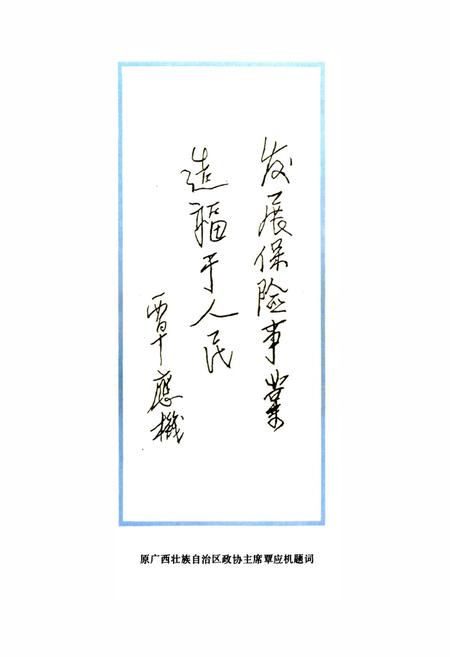 发展保险事業
造福于人民
覃應機
原广西壮族自治区政协主席覃应机题词